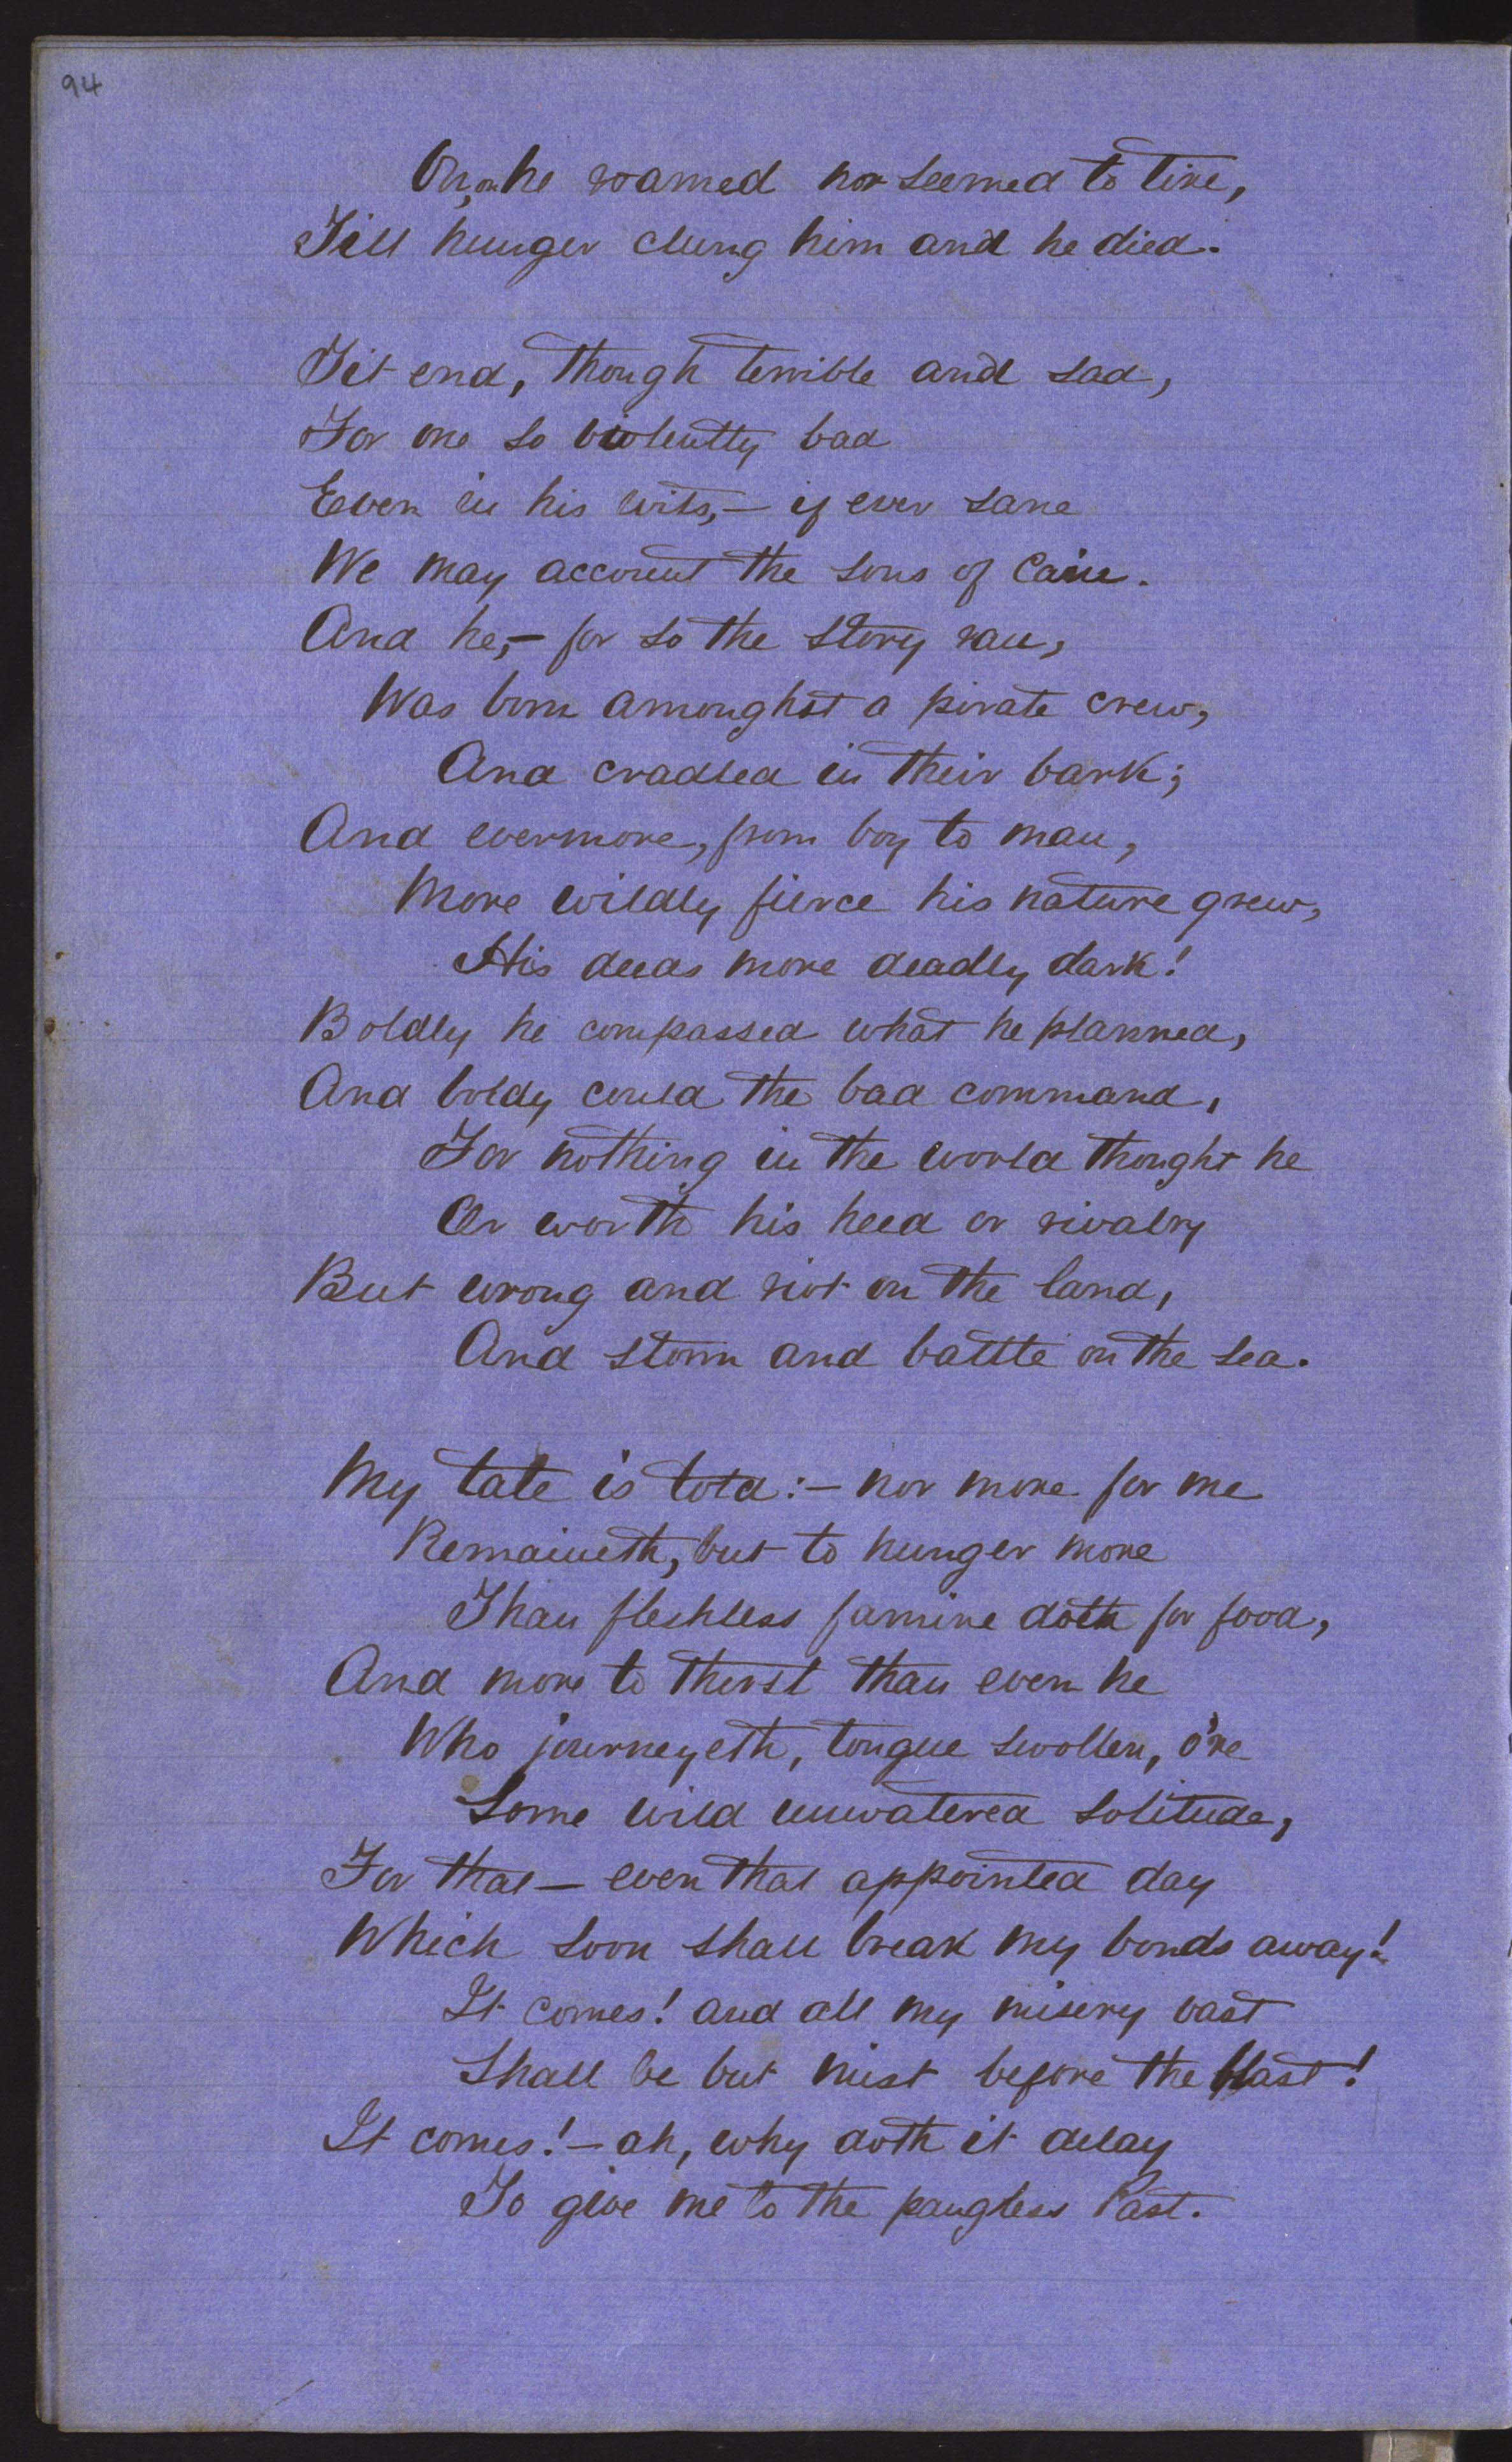 94
On, on he roamed nor seemed to tire,
Till hunger clung him and he died.
Fit end, though terrible and sad,
For one so violently bad
Even in his wits, – if ever sane
We may account the sons of Cain.
And he, – for so the story ran,
Was born amonghst a pirate crew,
And cradled in their bark;
And evermore, from boy to man,
More wildly fierce his nature grew,
His deeds more deadly dark!
Boldly he compassed what he planned,
And boldy could the bad command,
For nothing in the world thought he
Or worth his heed or rivalry
But wrong and riot on the land,
And storm and battle on the sea.
My tale is told: – nor more for me
Remaineth, but to hunger more
Than fleshless famine doth for food,
And more to thirst than even he
Who journeyeth, tongue swollen, o're
Some wild unwatered solitude,
For that – even that appointed day
Which soon shall break my bonds away!
It comes! and all my misery vast
Shall be but mist before the blast!
It comes! – ah, why doth it delay
To give me to the pangless Past.